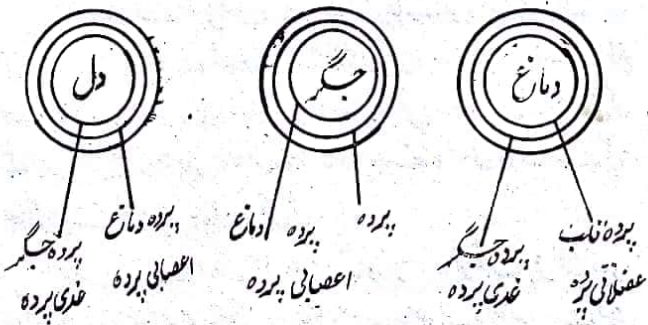 دماغ
جگر
دل
پردہ قلب
عضلاتی پردہ
پردہ جگر
غدی پردہ
پردہ
پردہ دماغ
اعصابی پردہ
پردہ دماغ
اعصابی پردہ
پردہ جگر
غدی پردہ